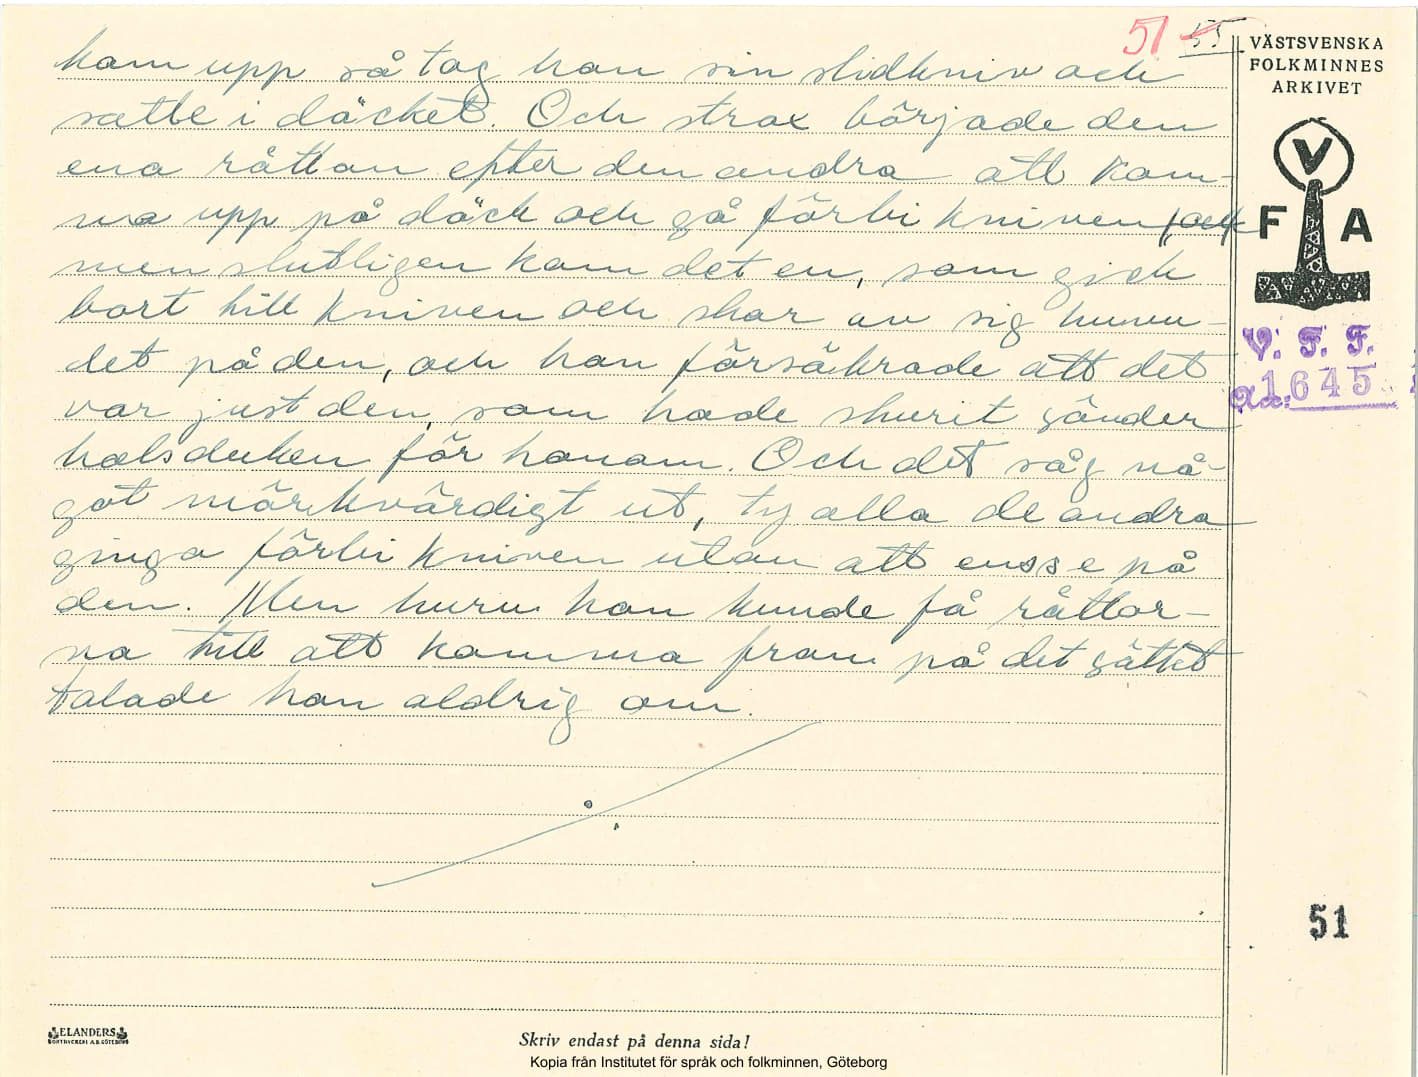 51 55
VÄSTSVENSKA
FOLKMINNES
ARKIVET
kom upp så tog han sin slidkniv och
satte i däcket. Och strax började den
ena råttan efter den andra att kom-
ma upp på däck och gå förbi kniven, (och
men slutligen kom det en, som gick
bort till kniven och skar av sig huvu-
det på den, och han försäkrade att det
var just den, som hade skurit sönder
halsduken för honom. Och det såg nå-
got märkvärdigt ut, ty alla de andra
gingo förbi kniven utan att ens se på
den. Men huru han kunde få råttor-
na till att komma fram på det sättet
talade han aldrig om.
V
F A
V. F. F.
Acc: 1645
51
ELANDERS
BOKTRYCKERI A.B. GÖTEBORG
Skriv endast på denna sida!
Kopia från Institutet för språk och folkminnen, Göteborg